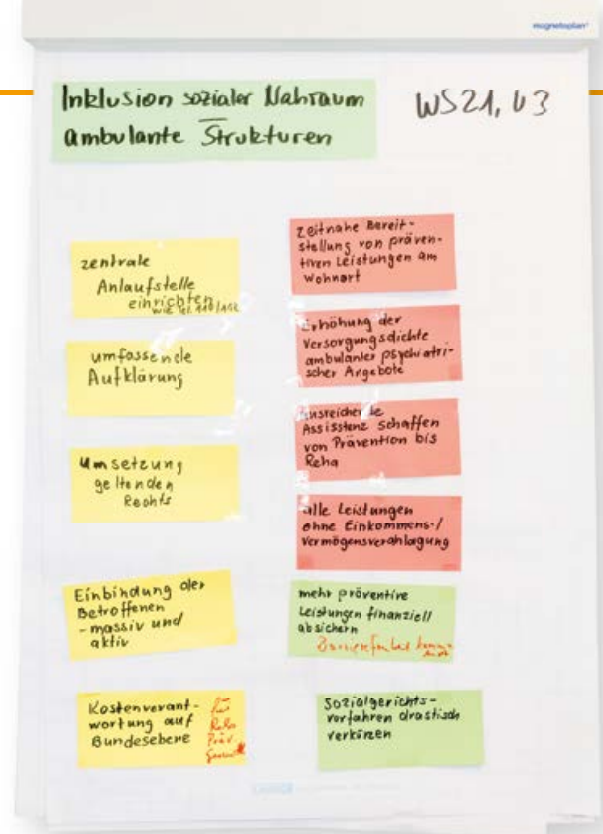 magnetoplan
Inklusion sozialer Nahraum
ambulante Strukturen
WS21, U3
zentrale
Anlaufstelle
einrichten
wie
umfassende
Aufklärung
Umsetzung
geltenden
Rechts
Einbindung der
Betroffenen
- massiv und
aktiv
Kostenverant-
wortung auf
Bundesebene
für
Reha
Präv.
zeitnahe Bereit-
stellung von präven-
tiven Leistungen am
Wohnort
Erhöhung der
Versorgungsdichte
ambulanter psychiatri-
scher Angebote
Ausreichende
Assistenz schaffen
von Prävention bis
Reha
alle Leistungen
ohne Einkommens-/
Vermögensveranlagung
mehr präventive
Leistungen finanziell
absichern
Barrierefreiheit
Sozialgerichts-
verfahren drastisch
verkürzen